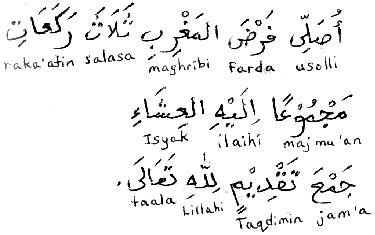 أُصَلِّى فَرْضَ المَغْرِبِ ثَلَاثَ رَكَعَاتٍ
raka'atin salasa maghribi farda usolli
مَجْمُوْعًا اِلَيْهِ العِشَاءِ
Isyak ilaihi majmu'an
جَمْعَ تَقْدِيْمٍ لِلّٰهِ تَعَالَى.
taala Lillahi Taqdimin jam'a